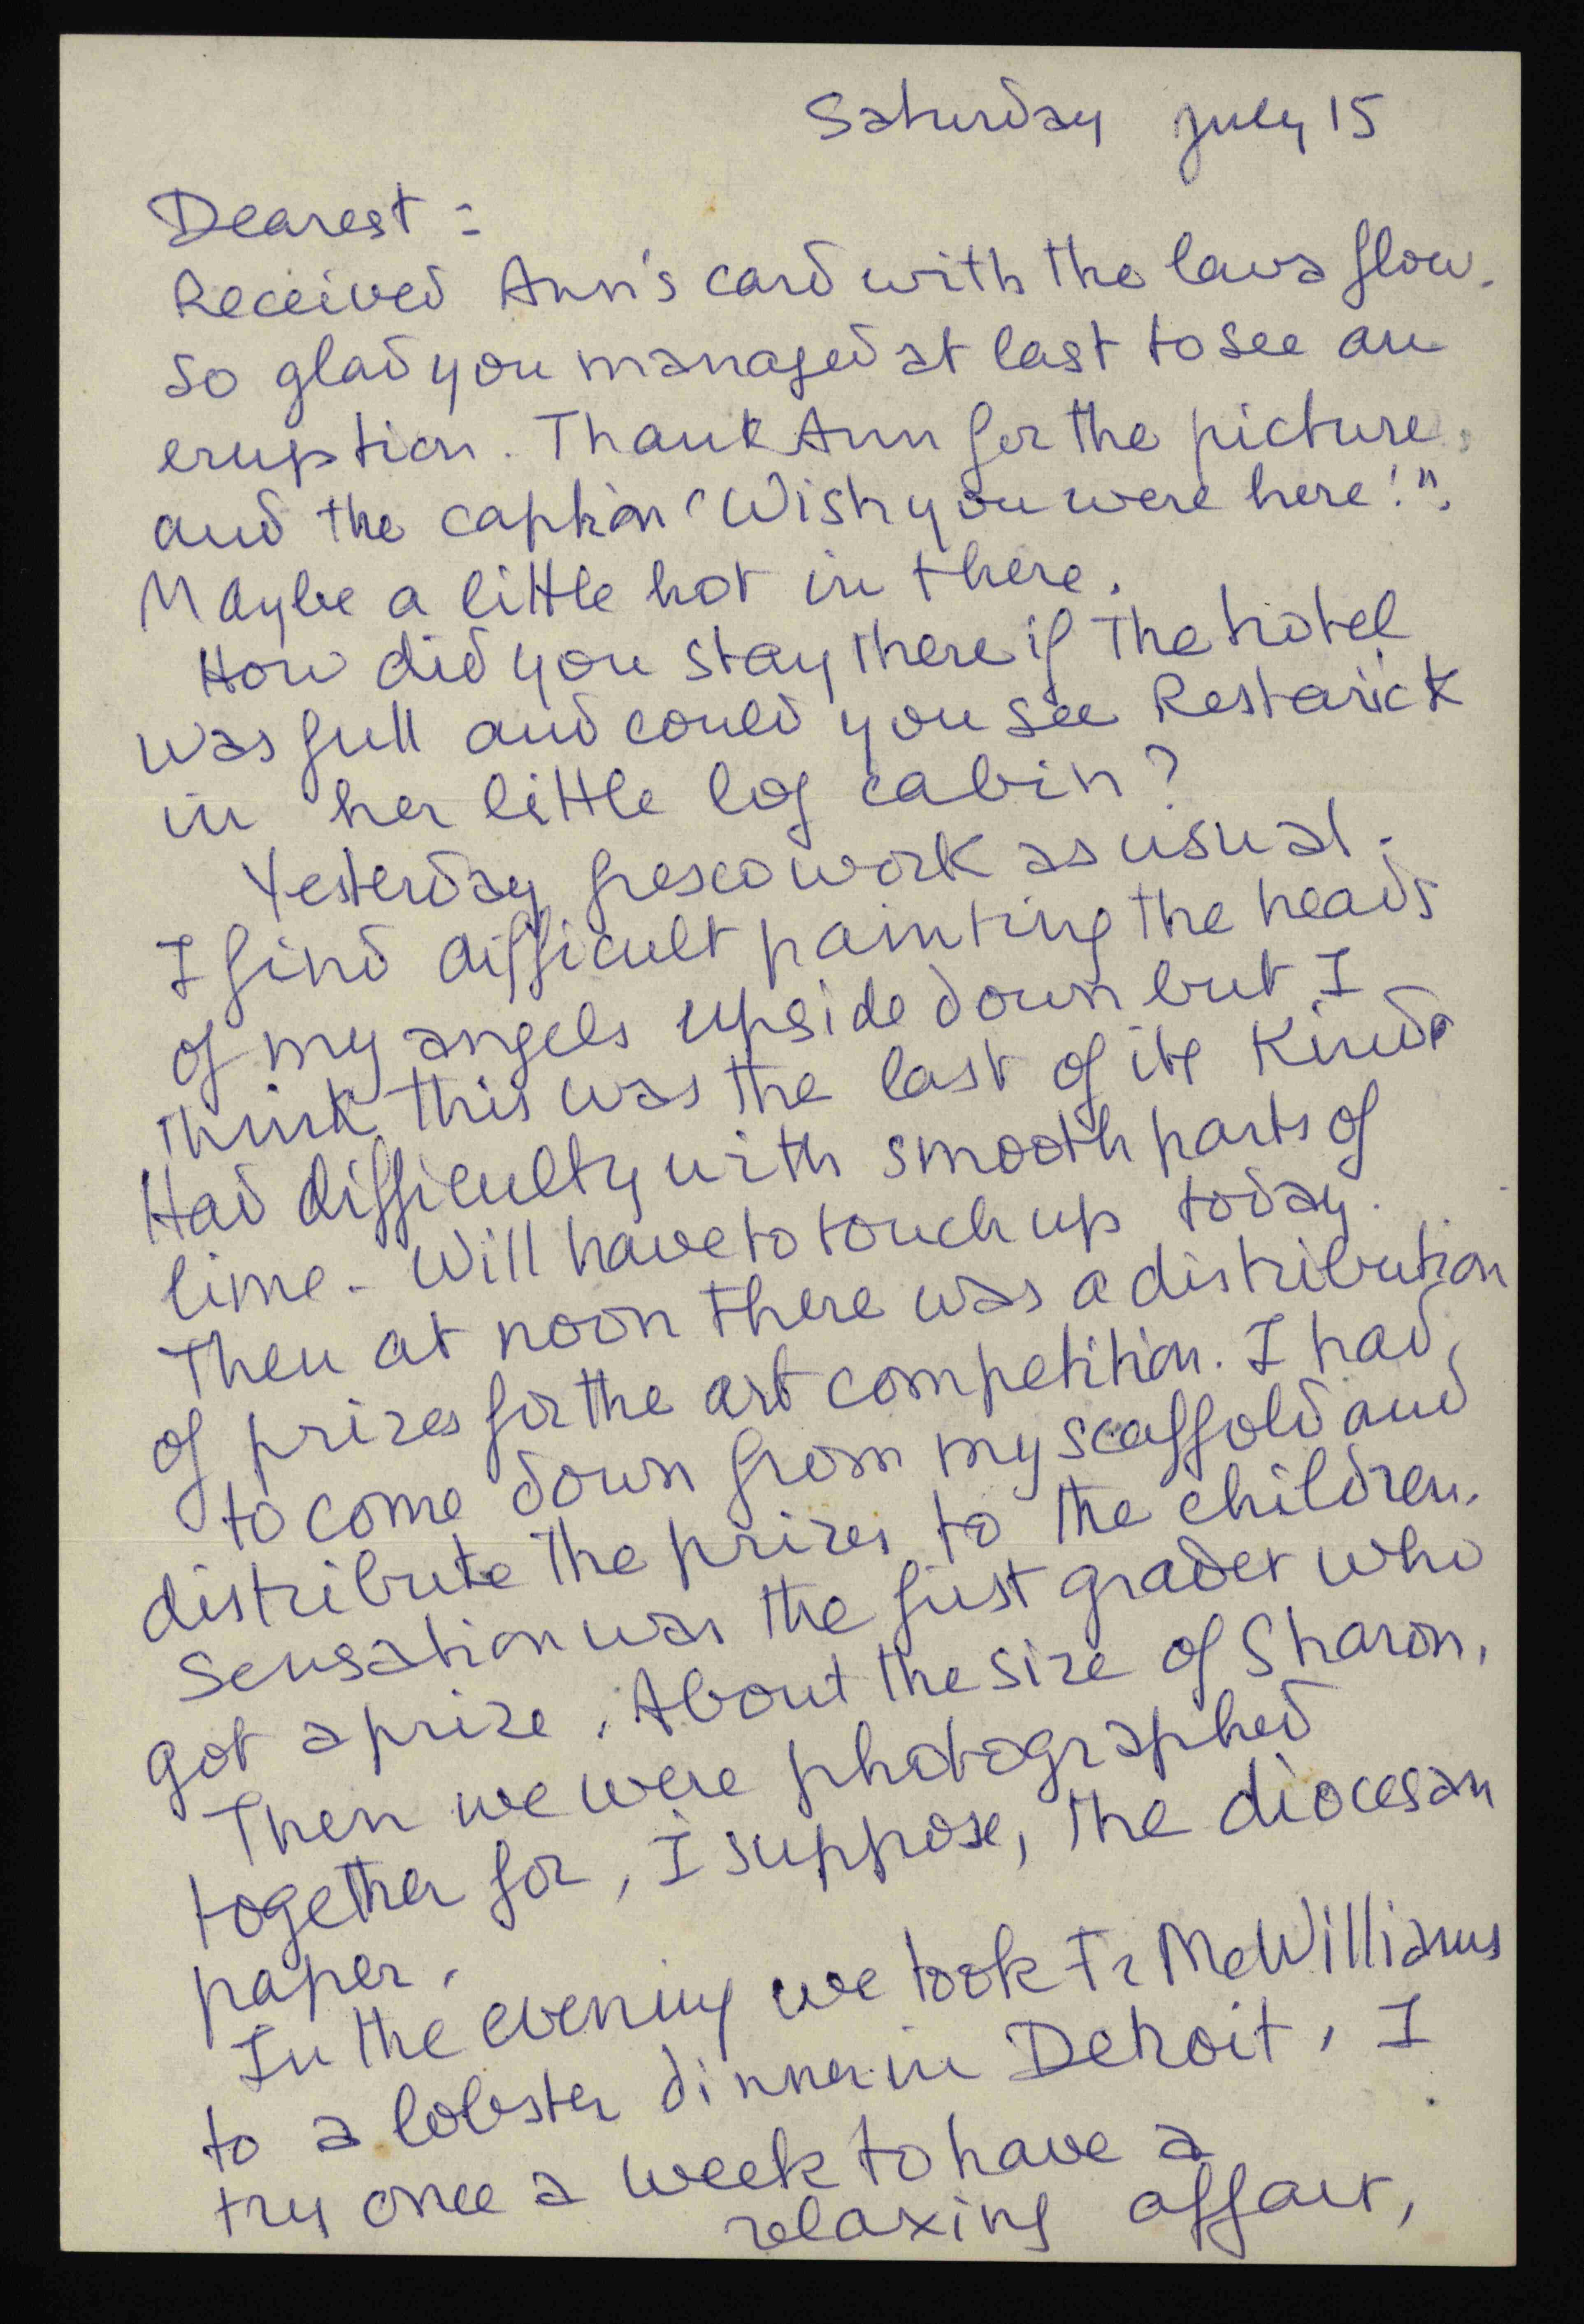 Saturday July 15
Dearest :
Received Ann's card with the lava flow.
So glad you managed at last to see an
eruption. Thank Ann for the picture,
and the caption "Wish you were here!".
Maybe a little hot in there.
How did you stay there if the hotel
was full and could you see Restarick
in her little log cabin?
Yesterday fresco work as usual.
I find difficult painting the heads
of my angels upside down but I
think this was the last of its kind.
Had difficulty with smooth parts of
lime. Will have to touch up today.
Then at noon there was a distribution
of prizes for the art competition. I had
to come down from my scaffold and
distribute the prizes to the children.
Sensation was the first grader who
got a prize. About the size of Sharon.
Then we were photographed
together for, I suppose, the diocesan
paper.
In the evening we took Fr McWilliams
to a lobster dinner in Detroit, I
try once a week to have a
relaxing affair,